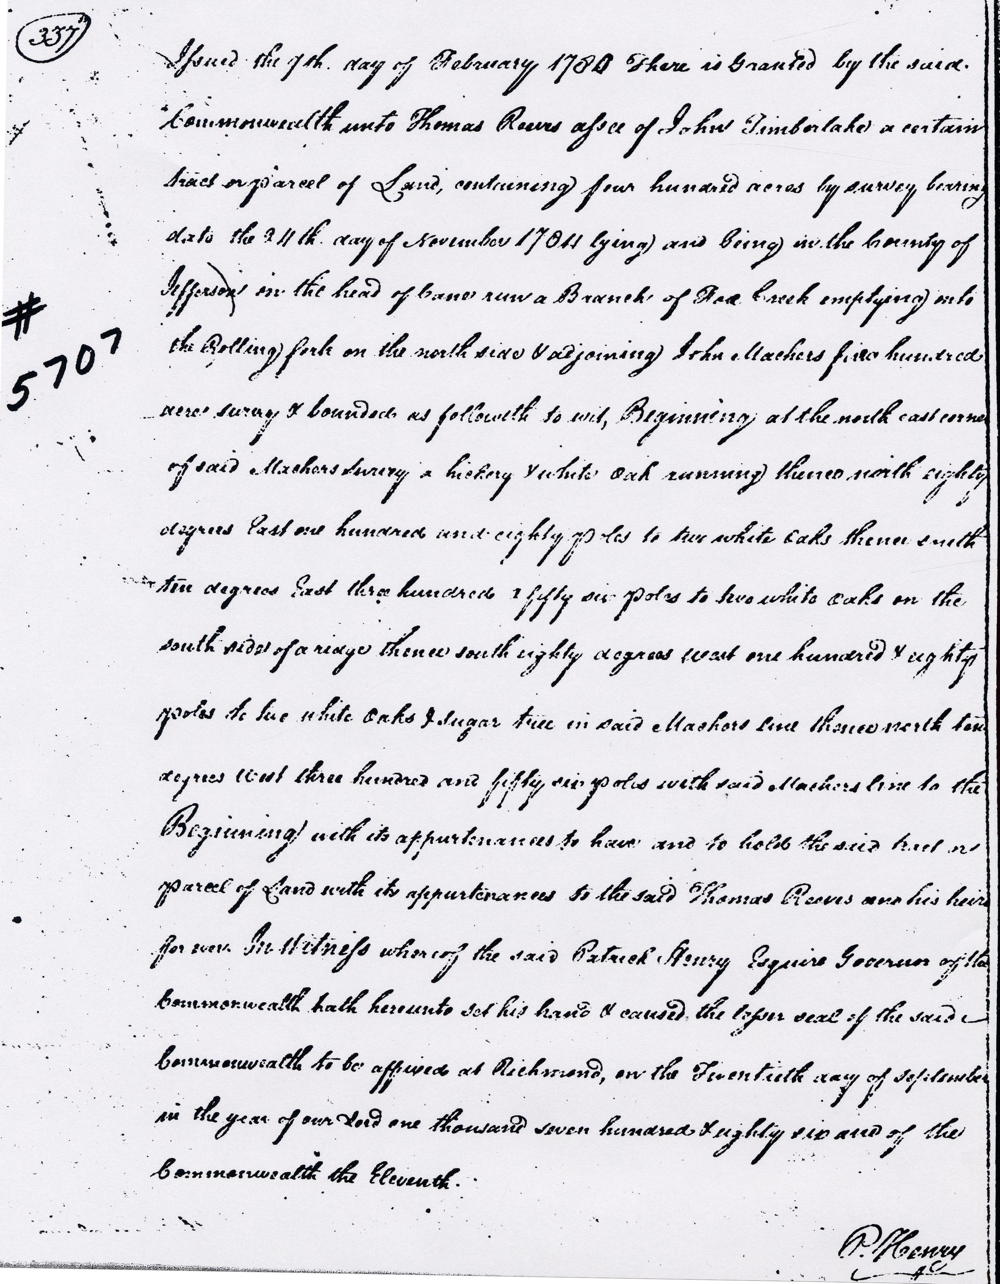 337
Issued the 7th. day of February 1780 There is Granted by the said
Commonwealth unto Thomas Reeves assee of John Timberlake a certain
tract or parcel of Land, containing four hundred acres by survey bearing
date the 24th. day of November 1784 lying and being in the County of
Jefferson on the head of Cane run a Branch of Fox Creek emptying into
# 5707
the Rolling fork on the north side & adjoining John Machers five hundred
acre survey & bounded as followeth to wit, Beginning at the north east corner
of said Machers survey a hickory & white Oak running thence north eighty
degrees East one hundred and eighty poles to two white Oaks thence south
ten degrees East three hundred & fifty six poles to two white Oaks on the
south side of a ridge thence south eighty degrees West one hundred & eighty
poles to two white Oaks & sugar tree in said Machers line thence north ten
degrees West three hundred and fifty six poles with said Machers line to the
Beginning with its appurtenances to have and to hold the said tract or
parcel of Land with its appurtenances to the said Thomas Reeves and his heirs
for ever. In Witness whereof the said Patrick Henry Esquire Governor of the
Commonwealth hath hereunto set his hand & caused the lesser seal of the said
Commonwealth to be affixed at Richmond, on the Twentieth day of September
in the year of our Lord one thousand seven hundred & eighty six and of the
Commonwealth the Eleventh.
P. Henry